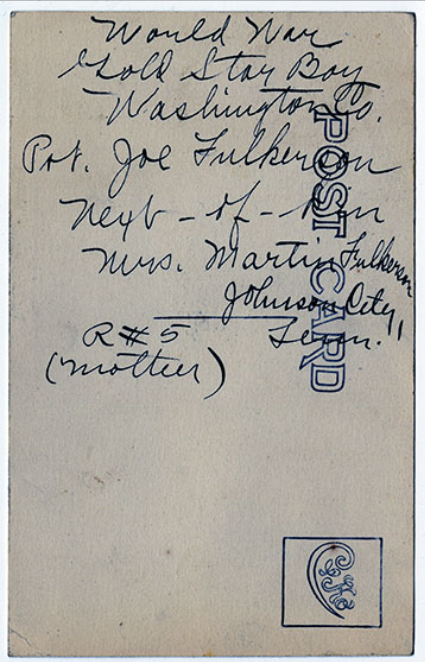 World War
Gold Star Boy
Washington Co.
Pvt. Joe Fulkerson
Next-of-kin
Mrs. Martin Fulkerson
Johnson City,
R#5 Tenn.
(mother)
POST CARD